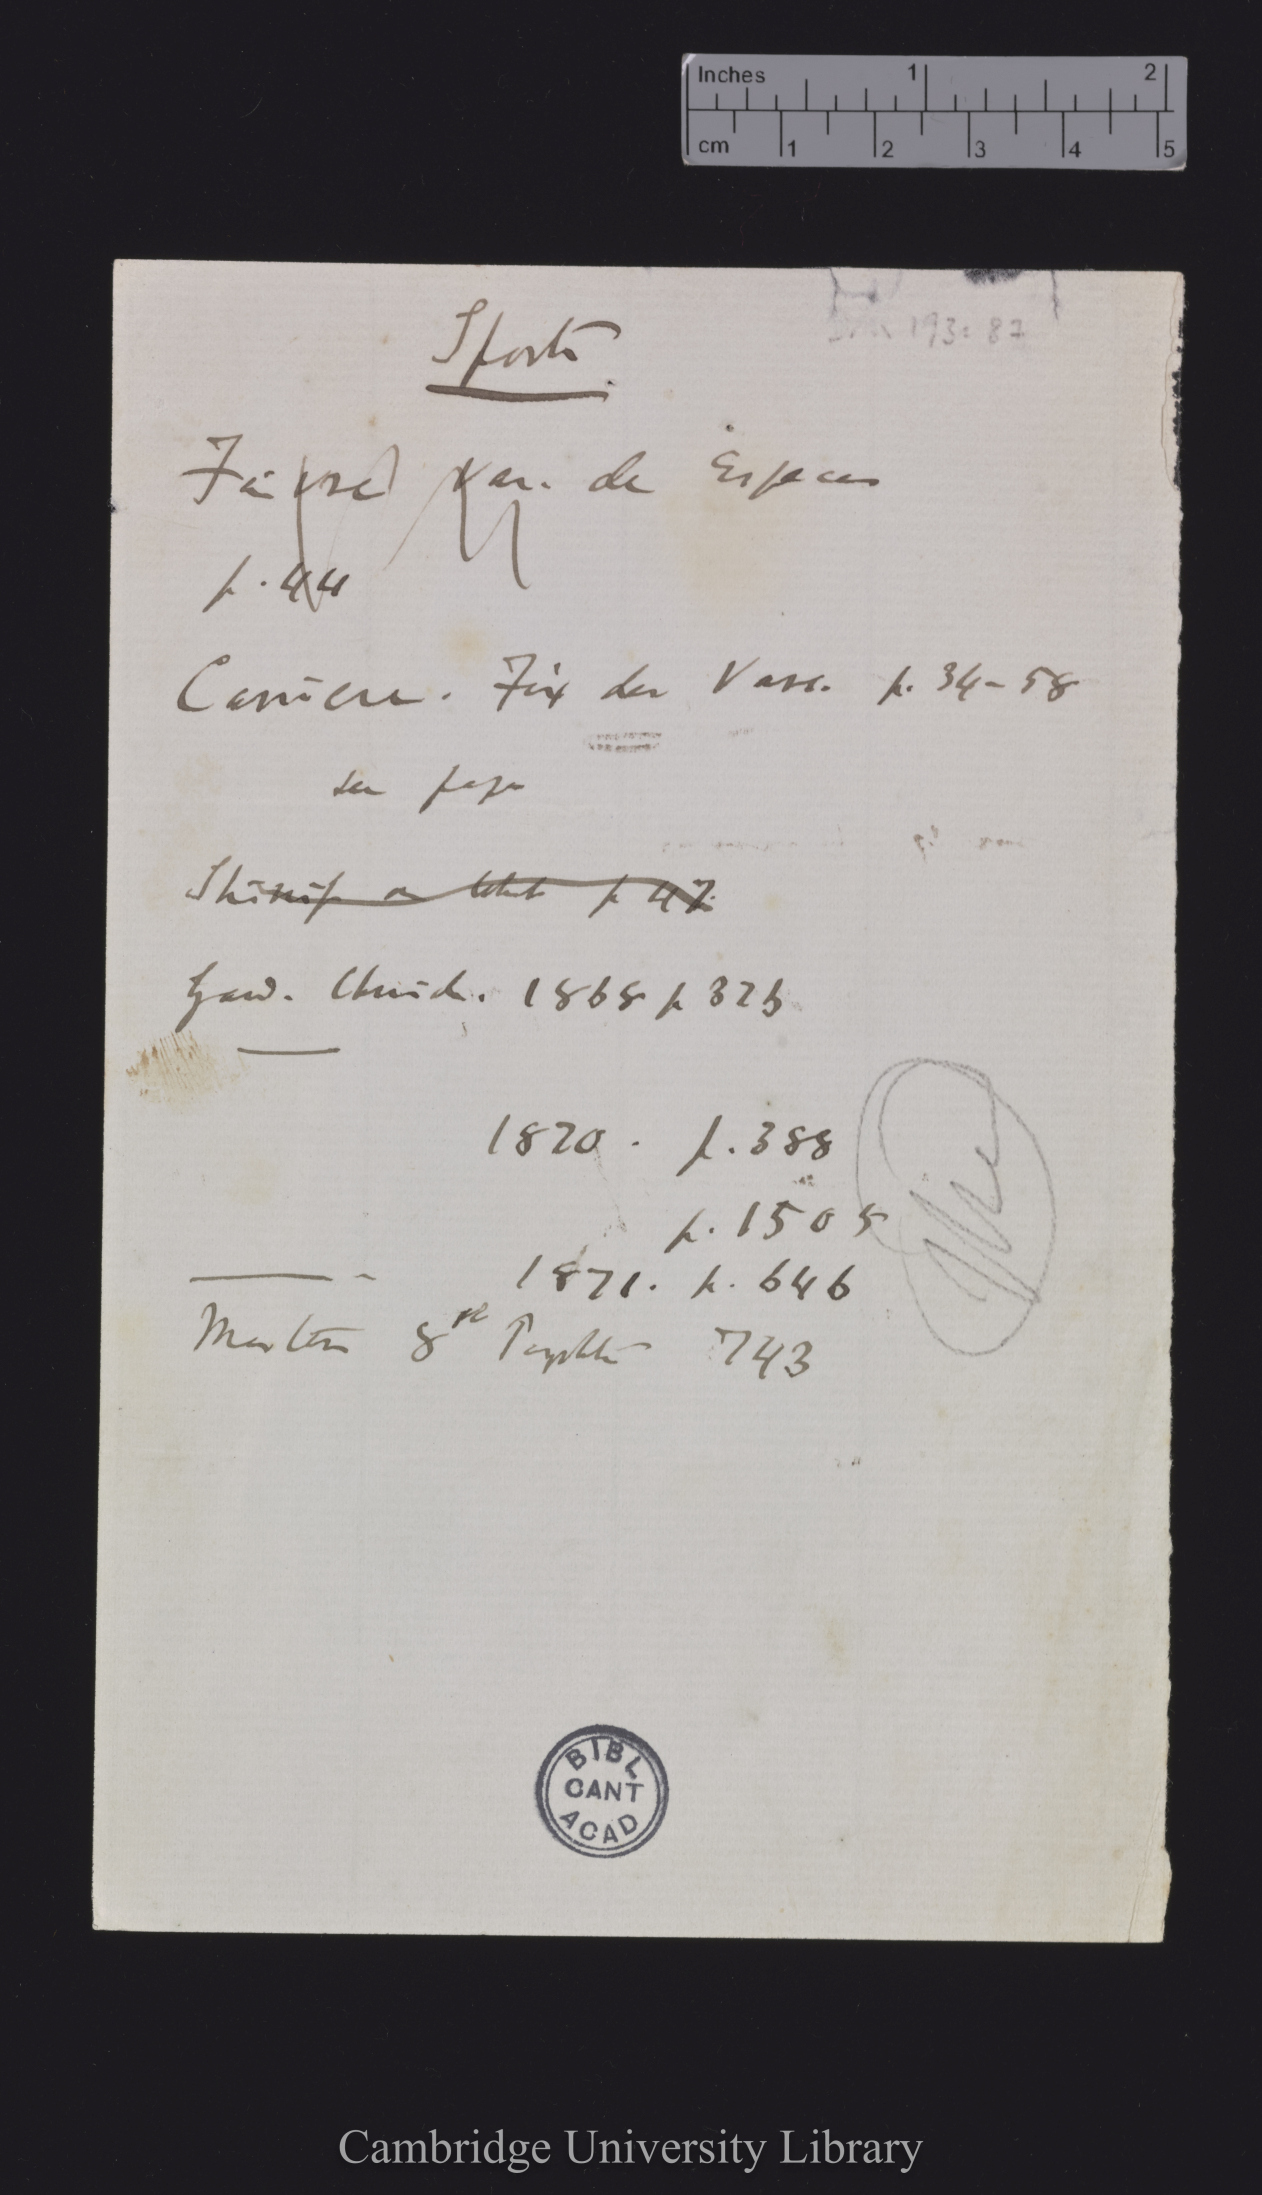 Inches 1 2
cm 1 2 3 4 5
DAR 193: 87
Sports
Faivre Var. de Especes
p. 44
Carriere. Fix des Vars. p. 34-58
see paper
Shirriff on Wheat p 47
Gard. Chronicle. 1868 p 326
1870. p. 388
p. 1505
1871. p. 646
Masters 8vo Pamphlet 743
BIBL
CANT
ACAD
Cambridge University Library